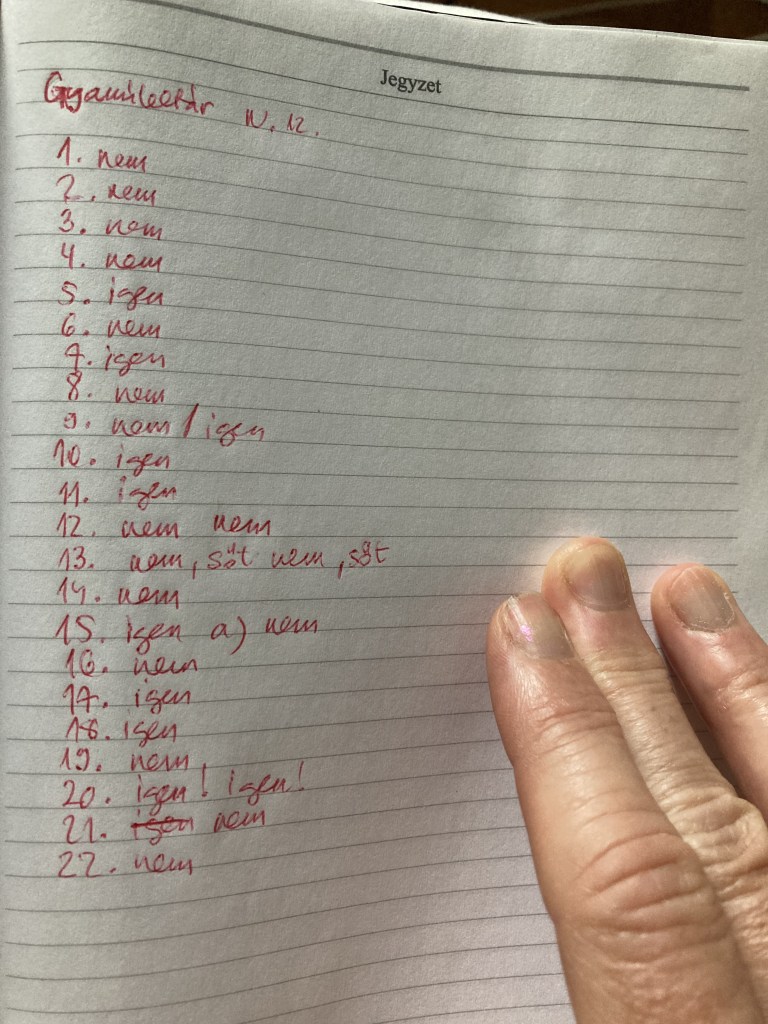 Jegyzet
IV. 12.
1. nem
2. nem
3. nem
4. nem
5. igen
6. nem
7. igen
8. nem
9. nem / igen
10. igen
11. igen
12. nem nem
13. nem, sőt nem, sőt
14. nem
15. igen a) nem
16. nem
17. igen
18. igen
19. nem
20. igen! igen!
21. igen nem
22. nem